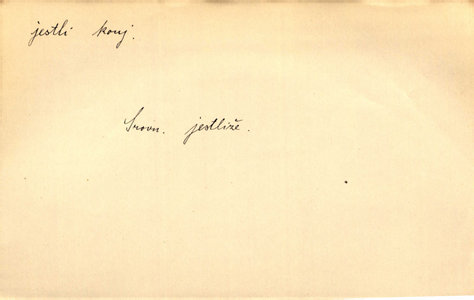 jestli konj.
Srovn. jestliže.